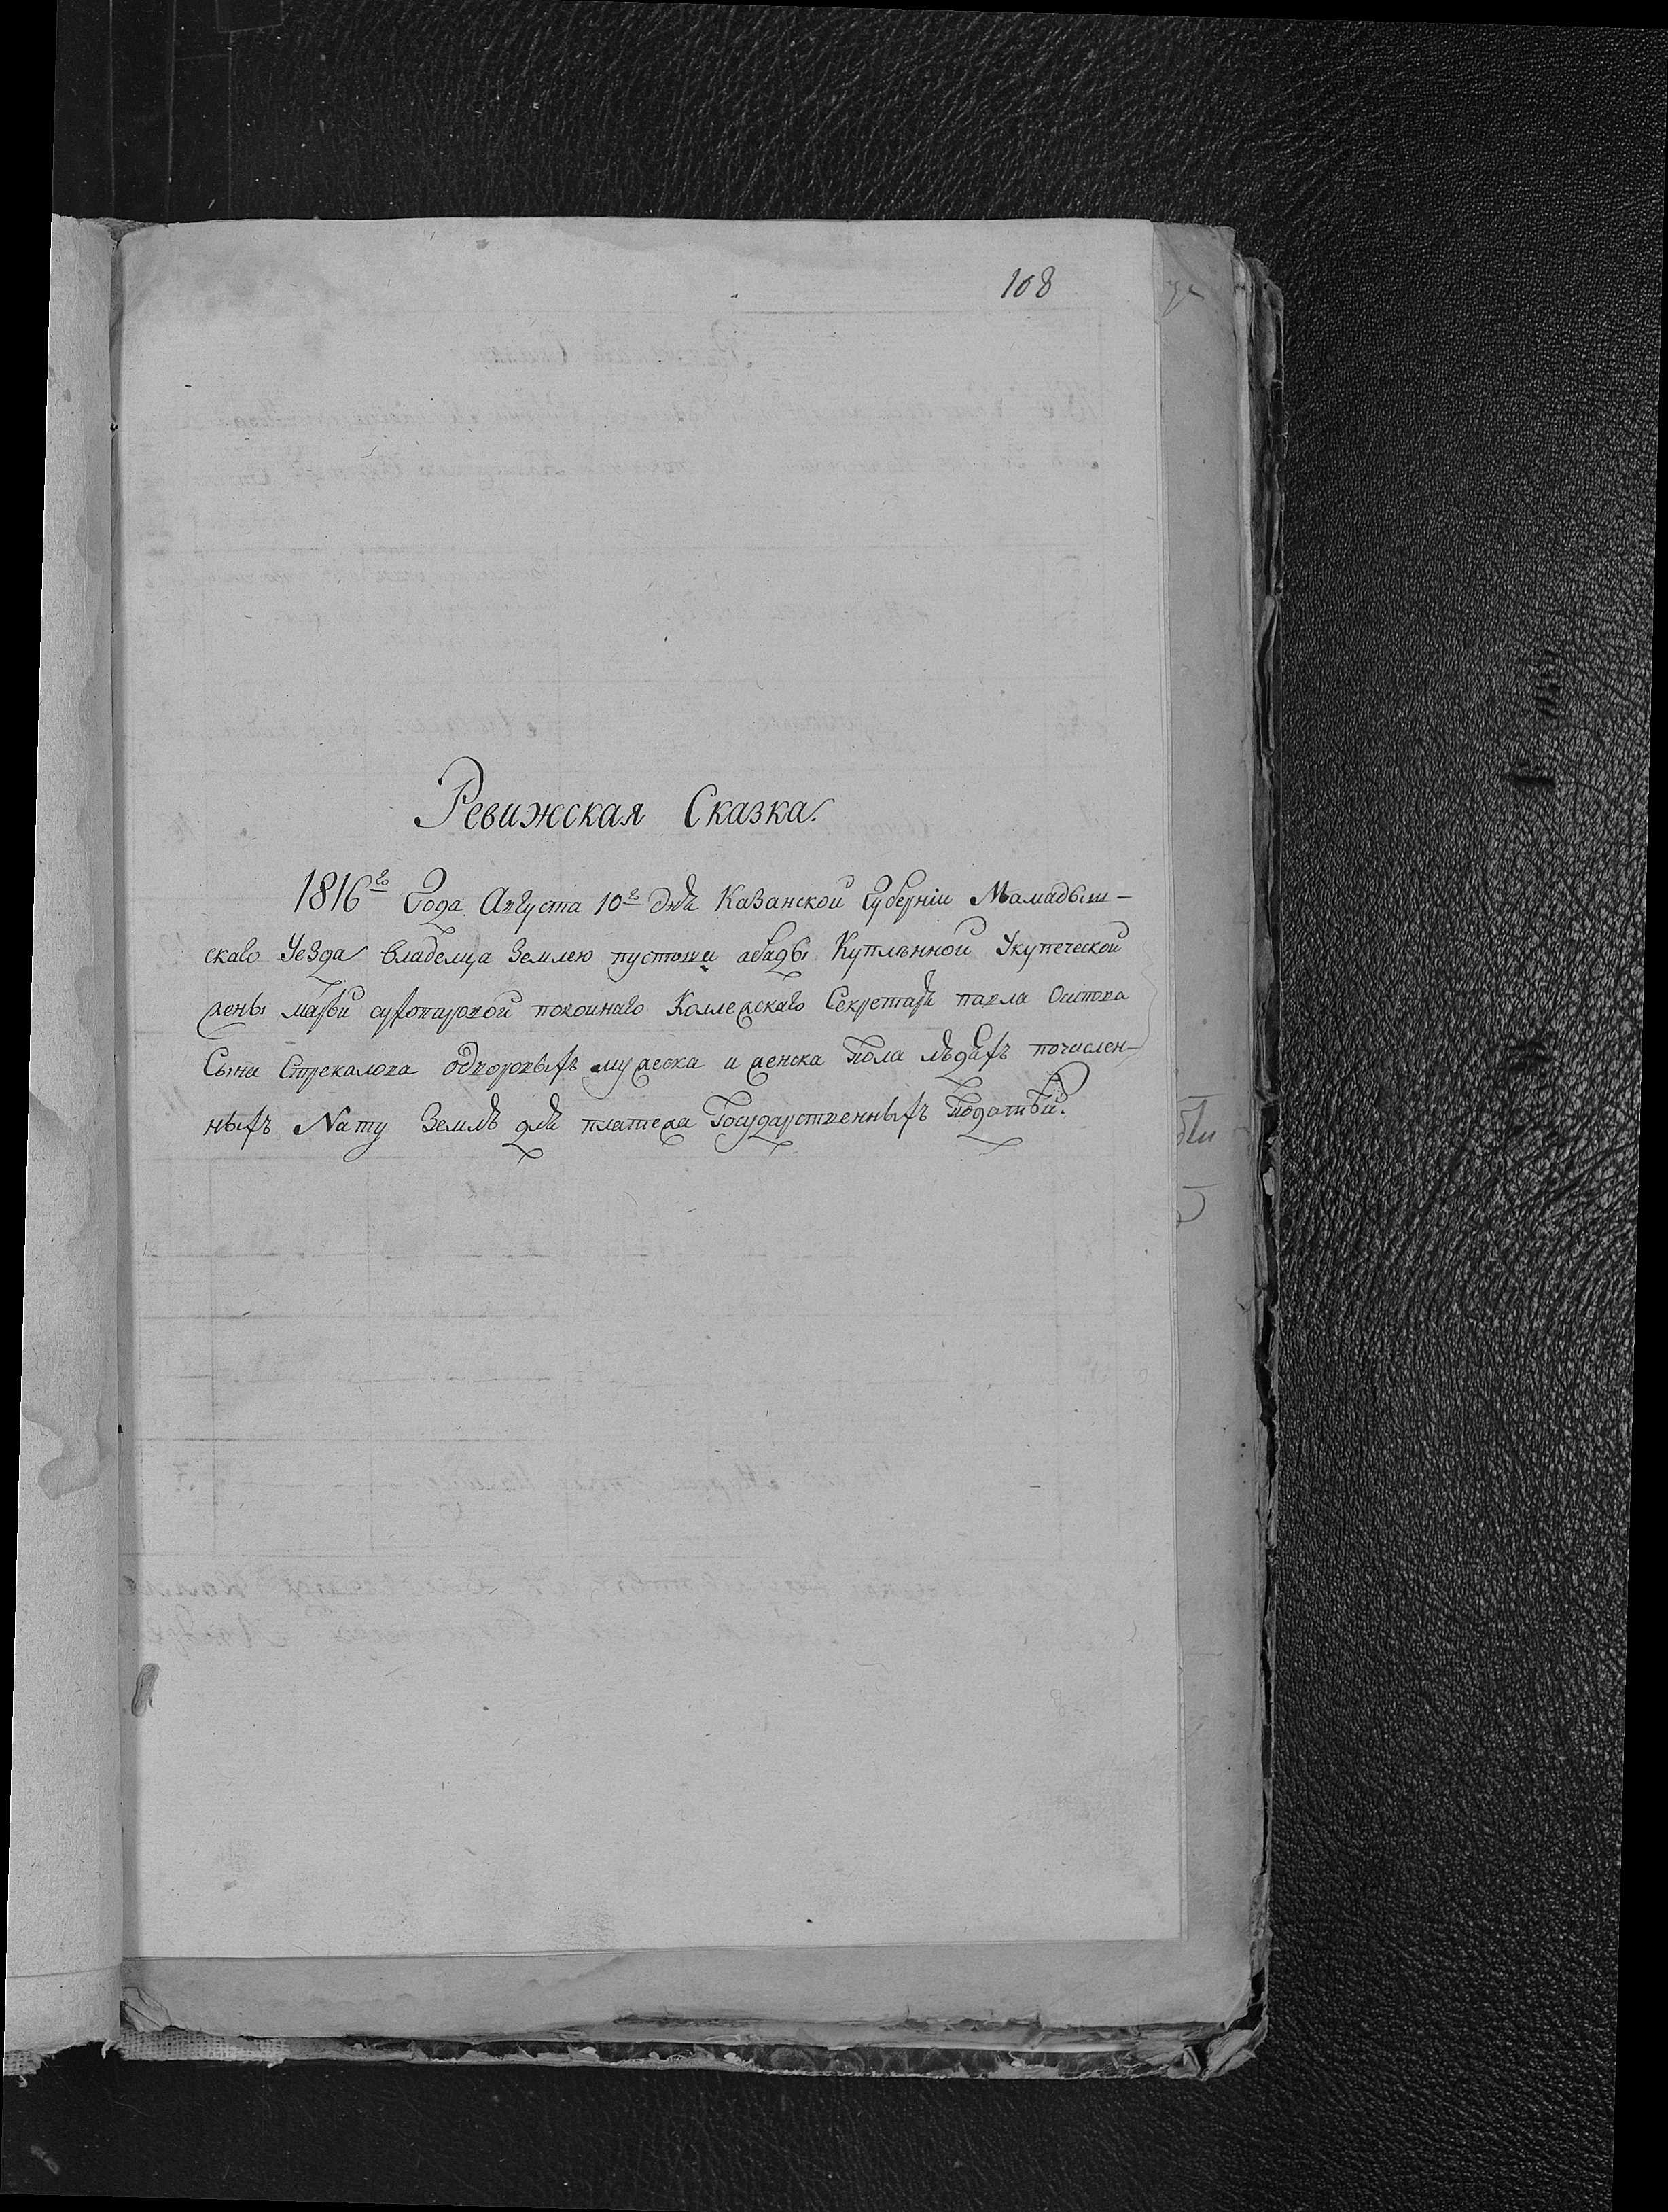 108
Ревижская Сказка.
1816го Года Августа 10го дня Казанской Губернiи Мамадыш-
скаго Уезда владелица Землею пустоши Купленной Укупеческой
жены марьи покоинаго Коллежскаго Секретаря павла Осипова
Сына Стрекалова одворовыхъ мужеска и женска Пола людяхъ почислен-
ныхъ Nату Землю для платежа Государственныхъ Податъй.